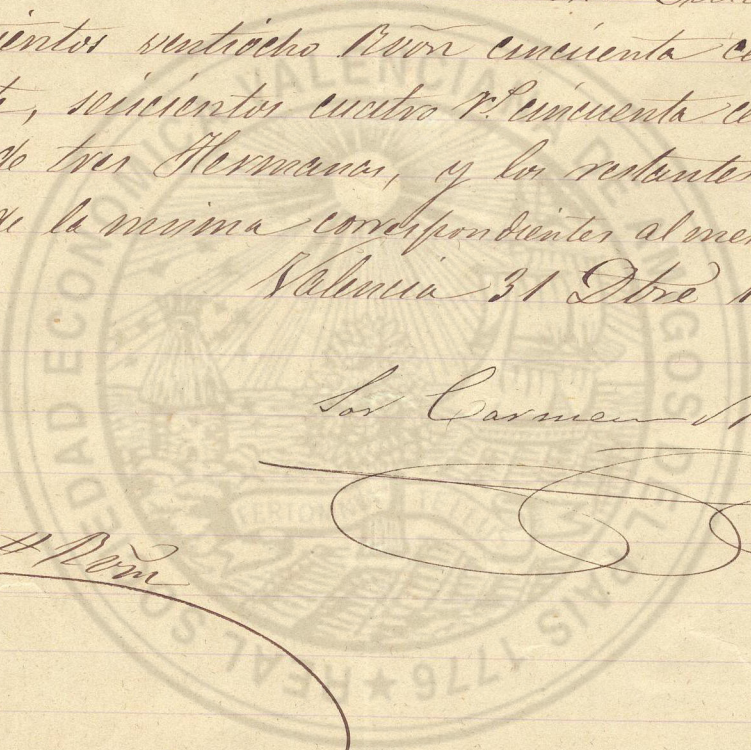 ientos ventiocho Rvón cincuenta ce
, seiscientos cuatro rs. cincuenta ce
de tres Hermanas, y los restantes
de la misma correspondientes al me
Valencia 31 Dbre 1
Sor Carmen
Rvón
REAL SOCIEDAD ECONOMICA VALENCIANA DE AMIGOS DEL PAIS 1776